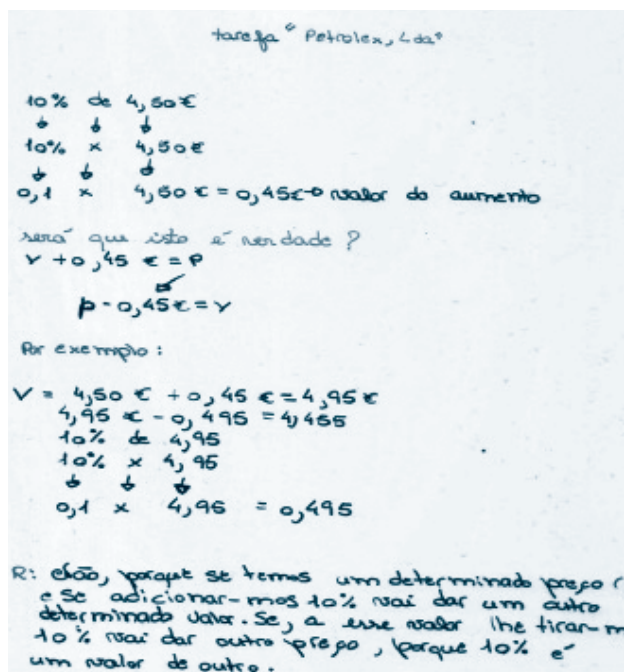 tarefa "Petrolex, Lda"
10% de 4,50€
↓ ↓ ↓
10% x 4,50€
↓ ↓ ↓
0,1 x 4,50 € = 0,45€ → valor do aumento
será que isto é verdade?
V + 0,45 € = P
p - 0,45€ = V
Por exemplo:
V = 4,50 € + 0,45 € = 4,95 €
4,95 € - 0,495 = 4,455
10% de 4,95
10% x 4,95
↓ ↓ ↓
0,1 x 4,95 = 0,495
R: Não, porque se temos um determinado preço (
e se adicionar-mos 10% vai dar um outro
determinado valor. Se, a esse valor lhe tirar-m
10% vai dar outro preço, porque 10% é
um valor de outro.